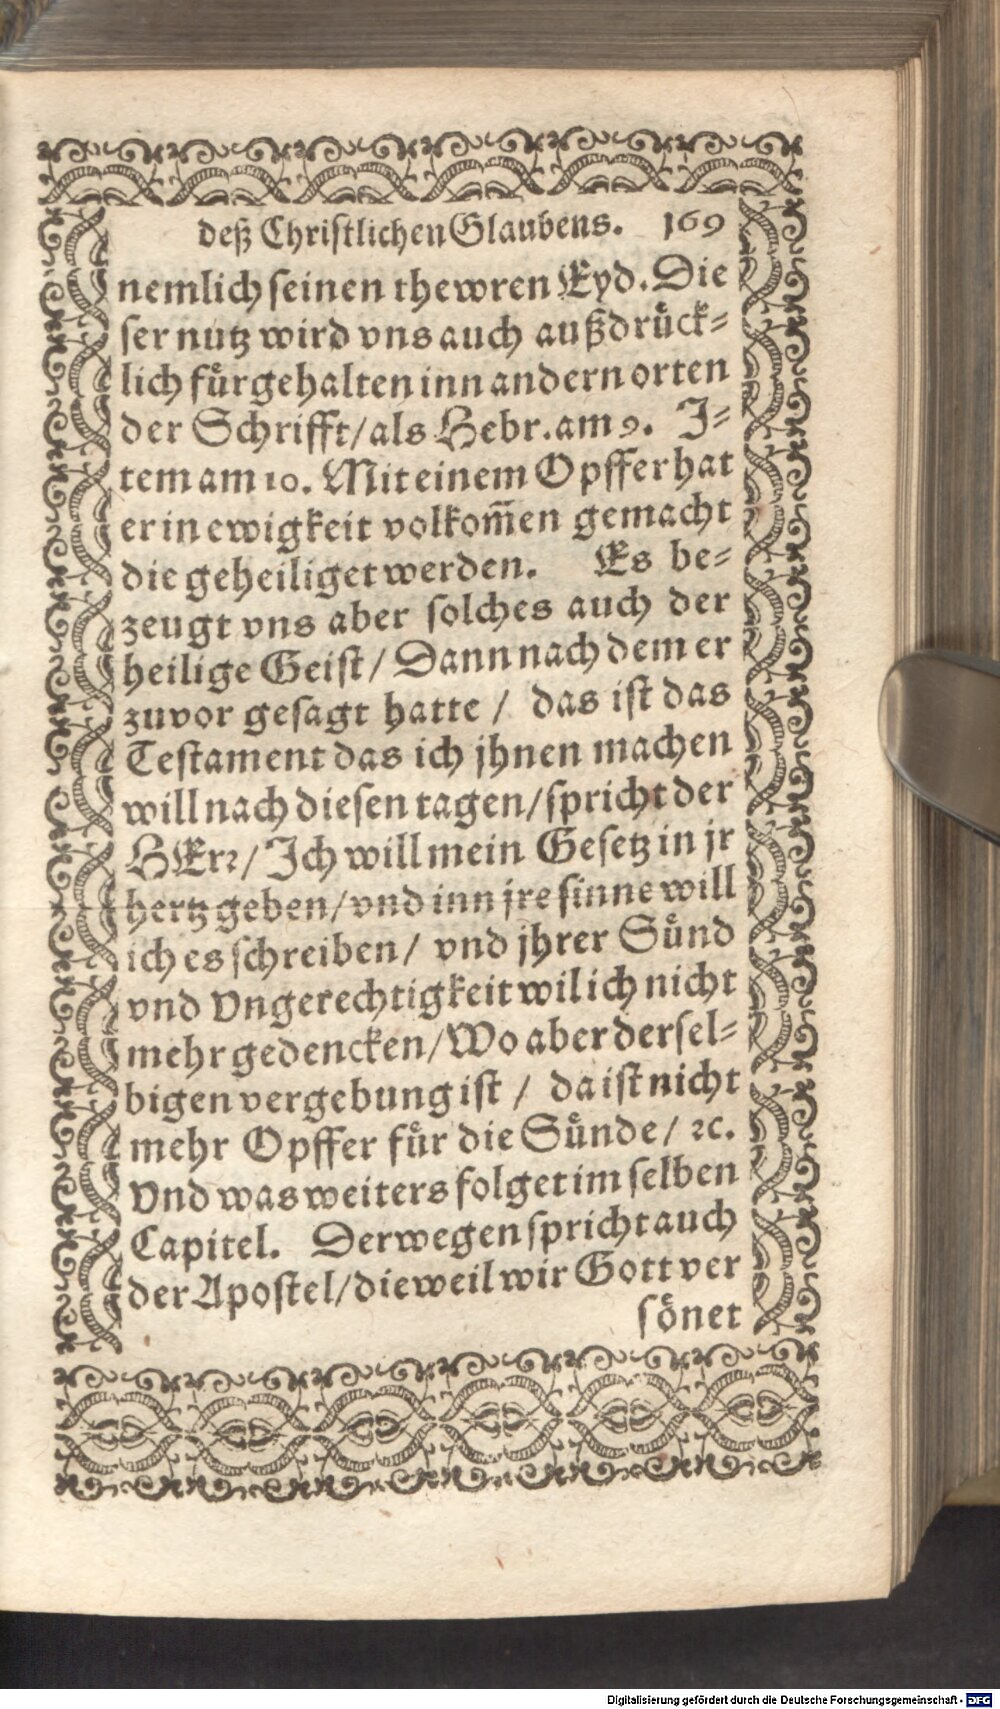 deß Christlichen Glaubens. 169
nemlich seinen thewren Eyd. Die
ser nutz wird vns auch außdruͤck=
lich fuͤrgehalten inn andern orten
der Schrifft/ als Hebr. am 9. J=
tem am 10. Mit einem Opffer hat
er in ewigkeit volkom̃en gemacht
die geheiliget werden. Es be=
zeugt vns aber solches auch der
heilige Geist/ Dann nach dem er
zuvor gesagt hatte / das ist das
Testament das ich jhnen machen
will nach diesen tagen/ spricht der
HErr/ Jch will mein Gesetz in jr
hertz geben/ vnd inn jre sinne will
ich es schreiben/ vnd jhrer Suͤnd
vnd Vngerechtigkeit wil ich nicht
mehr gedencken/ Wo aber dersel=
bigen vergebung ist / da ist nicht
mehr Opffer fuͤr die Suͤnde/ ꝛc.
Vnd was weiters folget im selben
Capitel. Derwegen spricht auch
der Apostel/ dieweil wir Gott ver
soͤnet
Digitalisierung gefördert durch die Deutsche Forschungsgemeinschaft - DFG